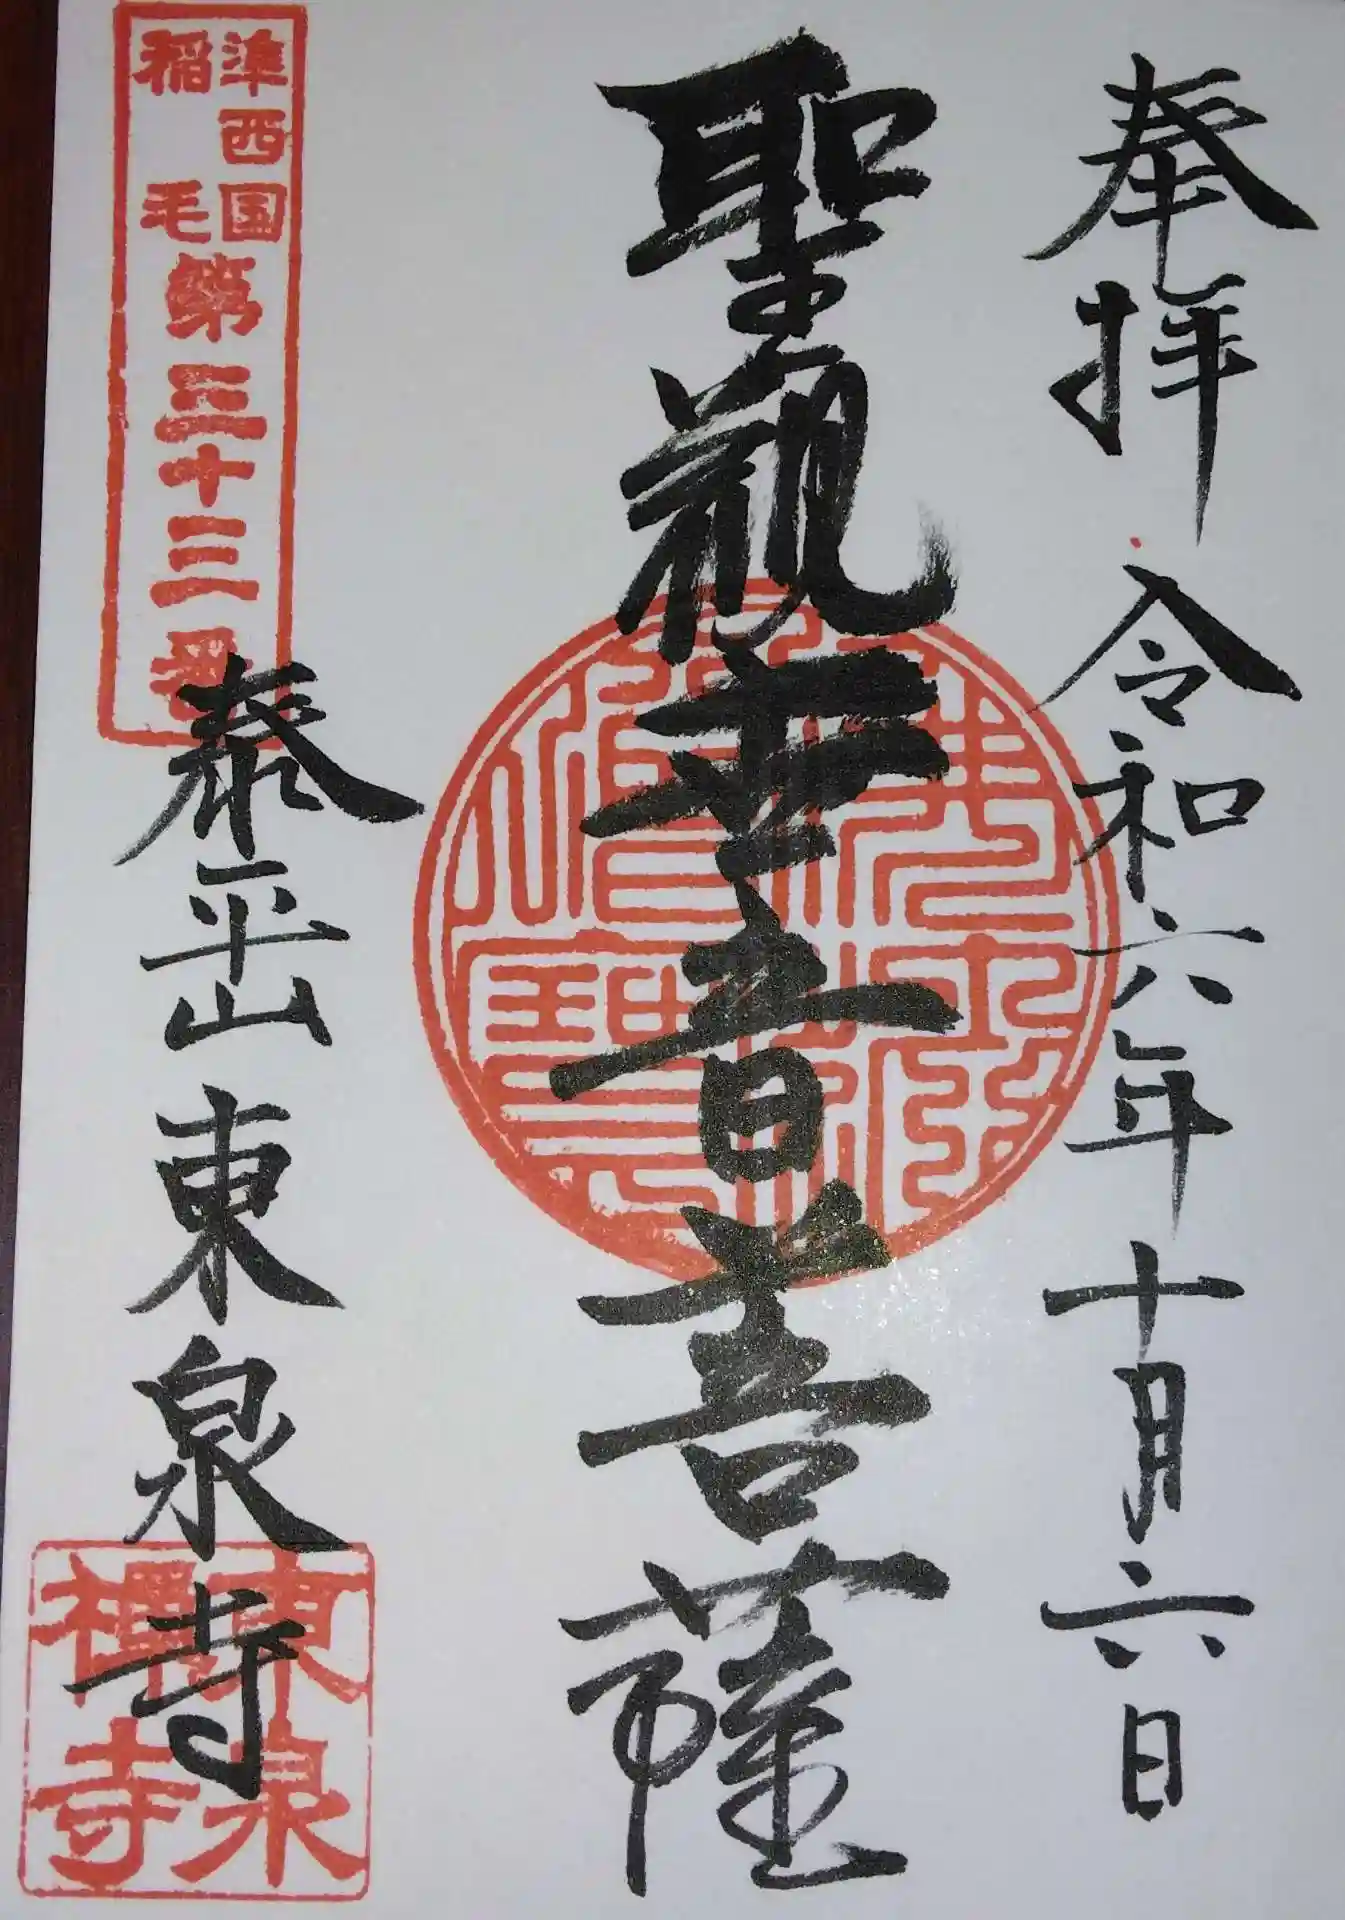 奉拝 令和六年十月六日
聖観世音菩薩
準西国
稲毛
第三十三番
泰平山 東泉寺
東泉
禅寺